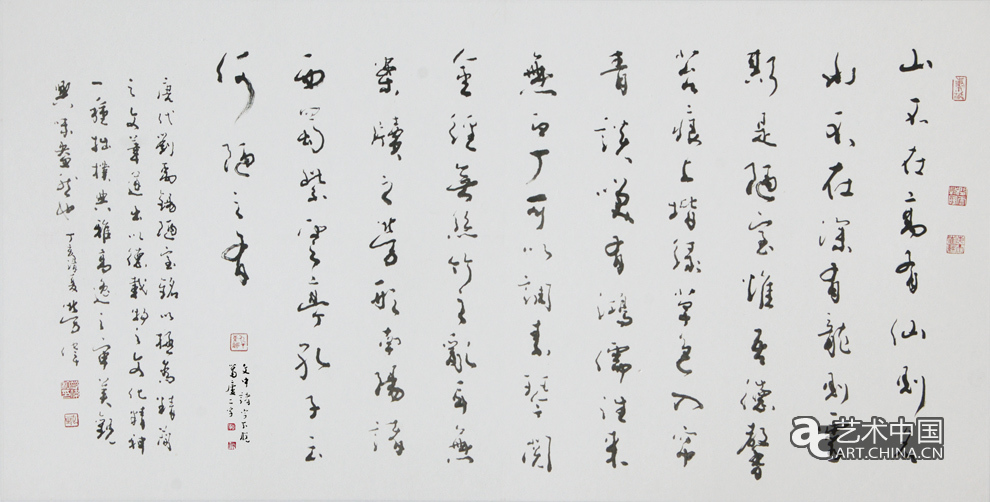 山不在高有仙則名
水不在深有龍則靈
斯是陋室惟吾德馨
苔痕上揩綠草色入帘
青談咲有鴻儒往來
無白丁可以調素琴閱
金經無絲竹之亂耳無
案牘之勞形南陽諸
西蜀子雲亭孔子云
何陋之有
文中諸字下脫
葛廬二字
唐代劉禹錫陋室銘以極為精簡
之文筆道出以德載物之文化精神
一種拙樸典雅高逸之審美觀
興味盎然也 丁亥 夏 勞偉
艺术中国
ART.CHINA.CN